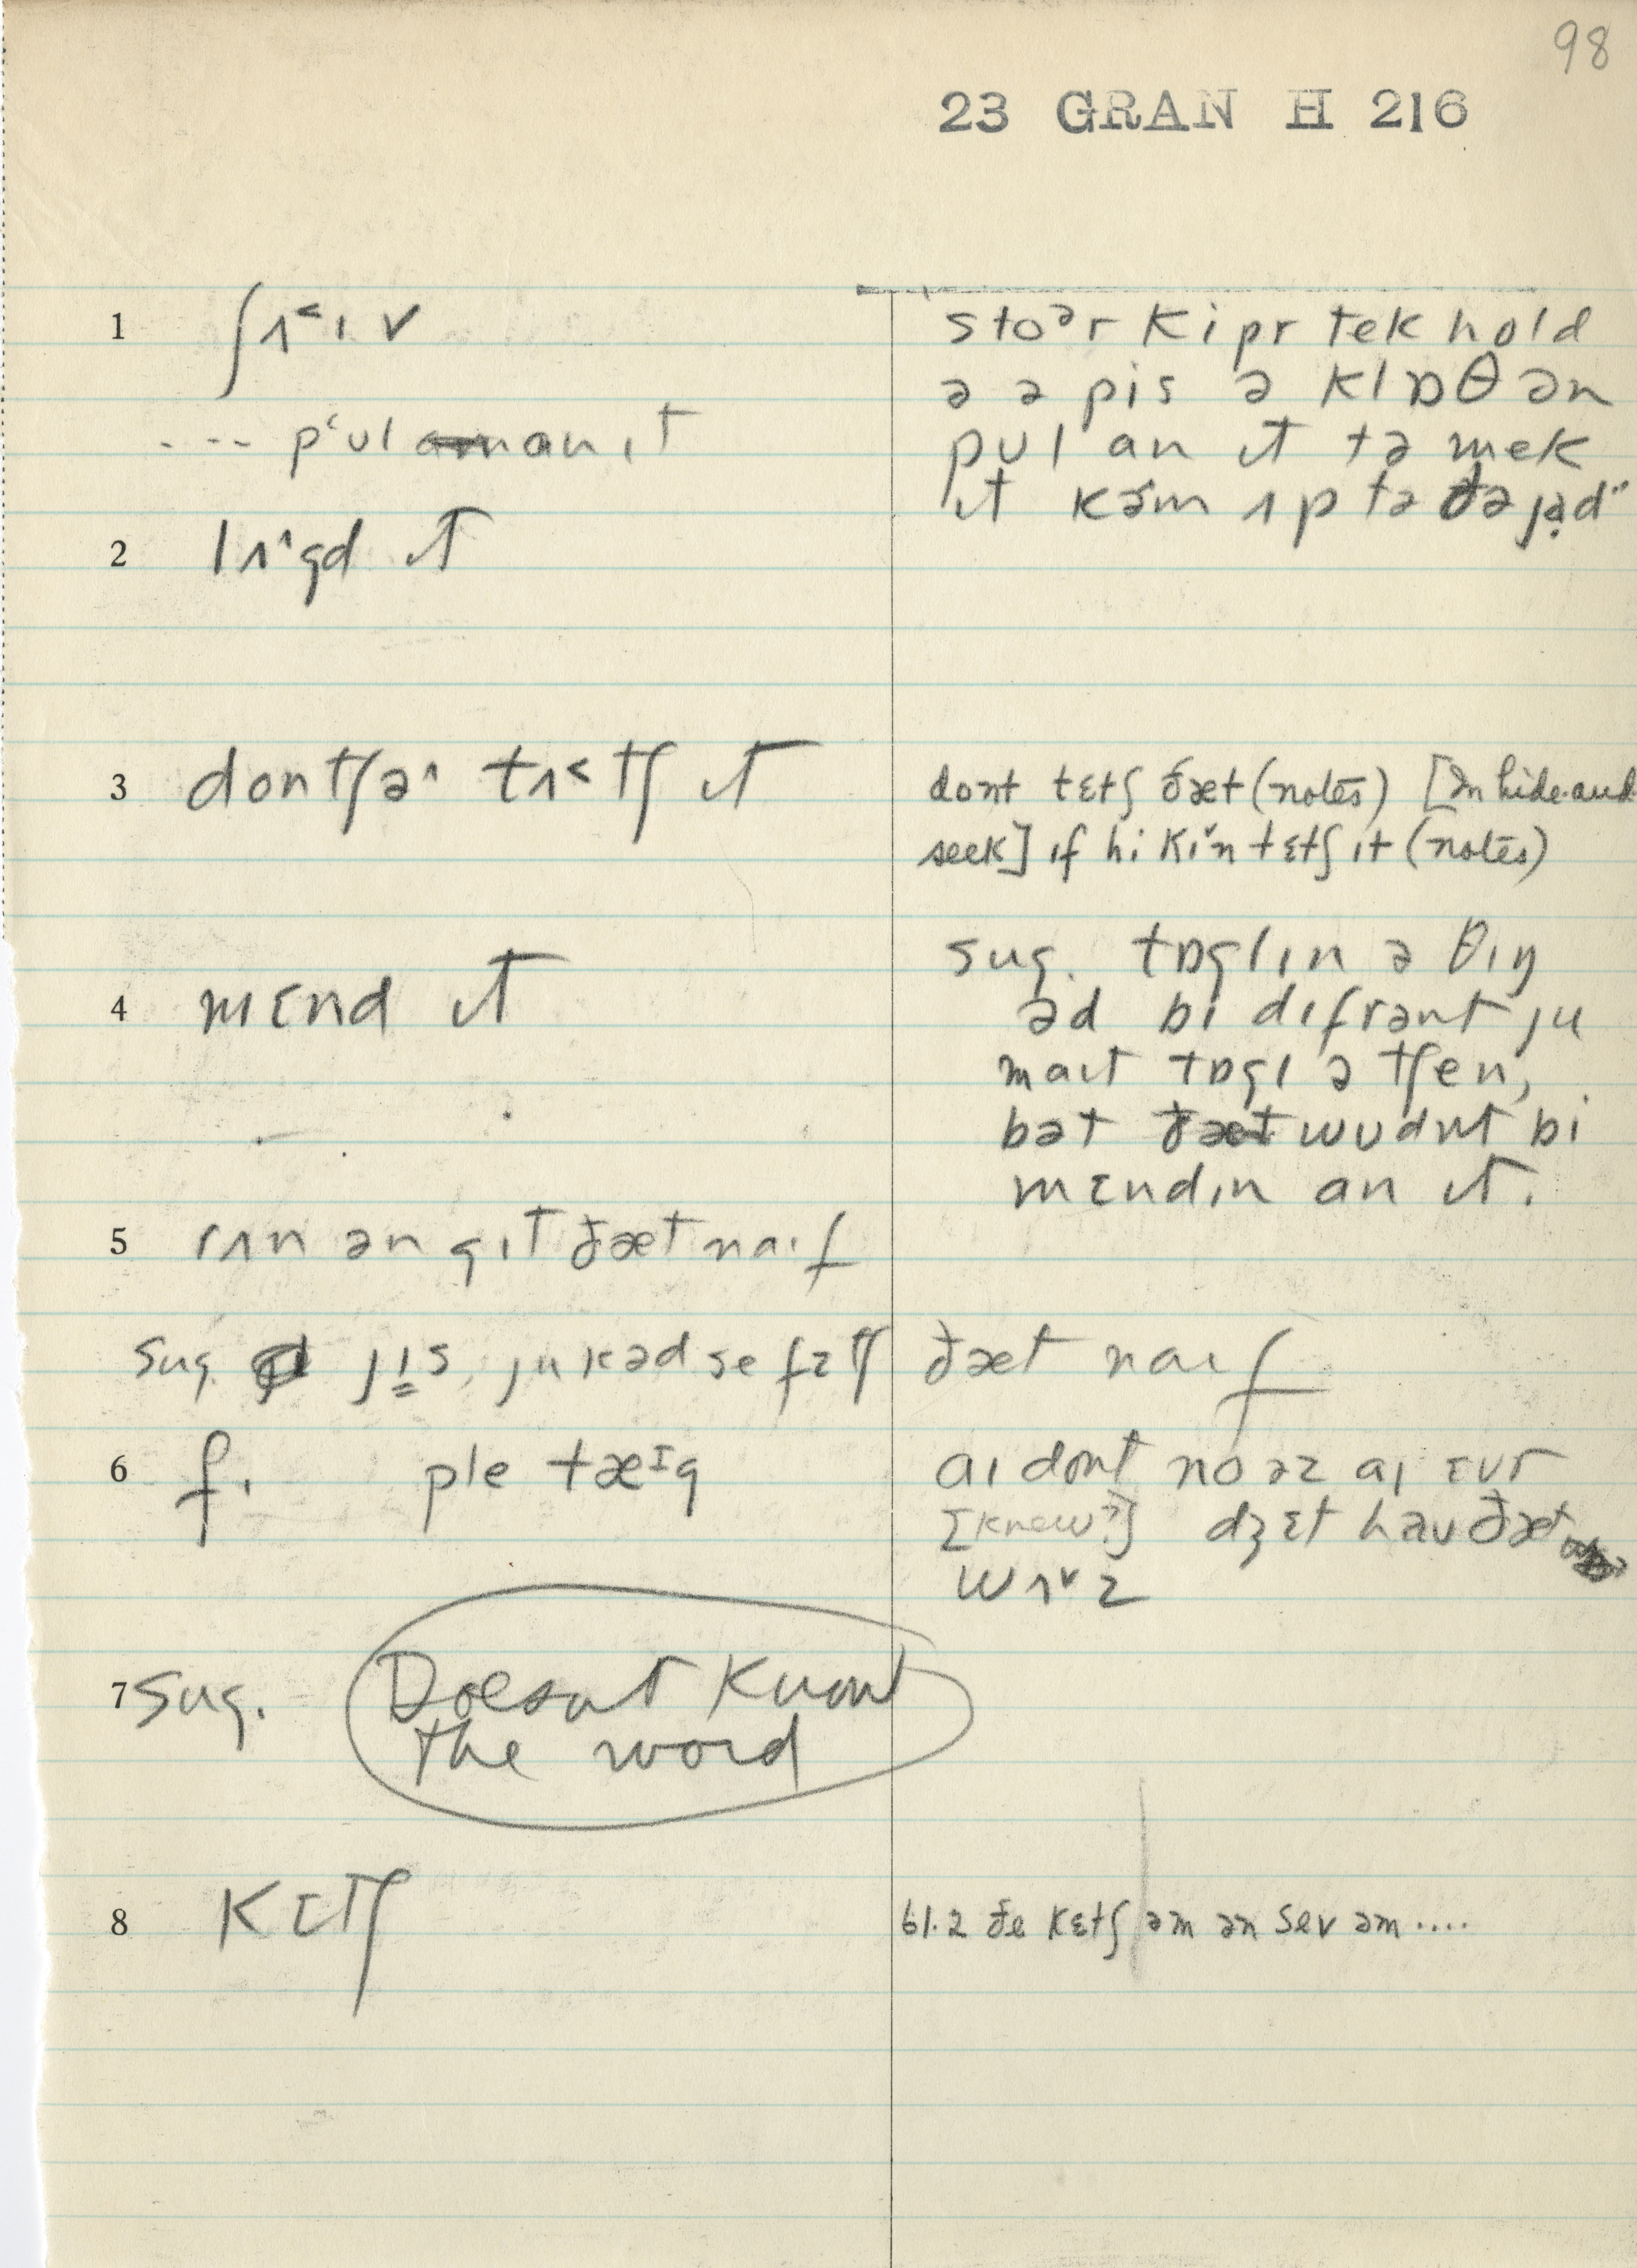 98
23 GRAN H 216
1 ʃʌ˂ɩv
---- pʻʊl an ɩt
stoᵊr kipr tek hold
ə ə pis ə klɒθ ən
pʊl an ɩt tə mek
ɩt kəm ʌp tə ðə jɑd"
2 lʌ˄gd ɩt
3 dontʃə˄ tʌ˂tʃ ɩt
dont tɛtʃ ðæt (notes) [In hide-and-
seek] ɩf hi kɩ˅n tɛtʃ ɩt (notes)
4 mɛnd ɩt
sug. tɒglɩn ə θɩŋ
əd bi dɩfrənt ju
maɩt tɒgl ə tʃen,
bət ðæt wʊdnt bi
mɛndɩn an ɩt.
5 rʌn ən gɩt ðæt naɩf
sug. jɩs, ju kəd se fɛtʃ ðæt naɩf
6 f. ple tæɪg
aɩ dont no əz aɩ ɛvr
[knew?] dʒɛt haʊ ðæt
wʌ˅z
7 sug. Doesnt know
the word
8 kɛtʃ
61.2 ðe kɛtʃ əm ən sev əm ....